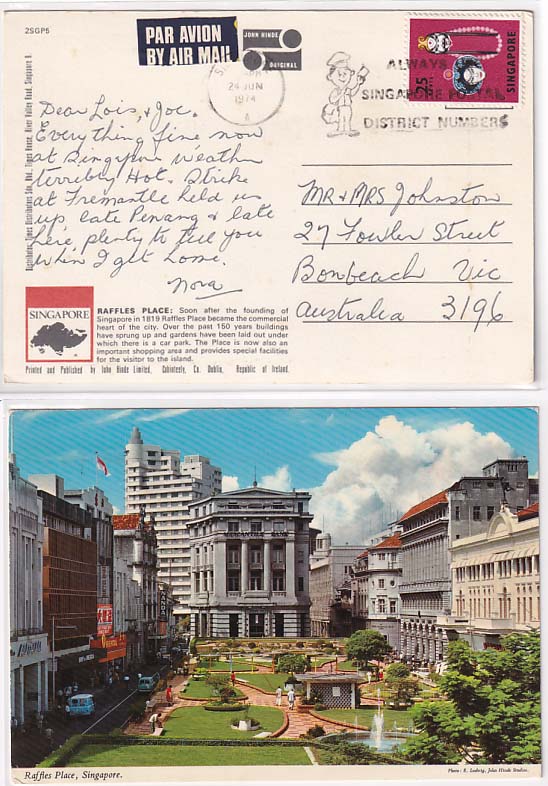 2SGP5
PAR AVION
BY AIR MAIL
JOHN HINDE
ORIGINAL
24 JUN
1974
A
ALWAYS
SINGAPORE POSTAL
DISTRICT NUMBERS
25
SINGAPORE
Dear Lois, & Joe.
Everything fine now
at Singapore Weather
terribly Hot. Strike
at Fremantle held us
up late Penang & late
here, plenty to tell you
when I get home.
Nora
Mr & Mrs Johnston
27 Fowler Street
Bonbeach Vic
Australia 3196
Distribution: Times Distributors Sdn. Bhd., Times House, River Valley Road, Singapore 9.
SINGAPORE
RAFFLES PLACE: Soon after the founding of
Singapore in 1819 Raffles Place became the commercial
heart of the city. Over the past 150 years buildings
have sprung up and gardens have been laid out under
which there is a car park. The Place is now also an
important shopping area and provides special facilities
for the visitor to the island.
Printed and Published by John Hinde Limited, Cabinteely, Co. Dublin, Republic of Ireland.
Raffles Place, Singapore.
Photo: E. Ludwig, John Hinde Studios.